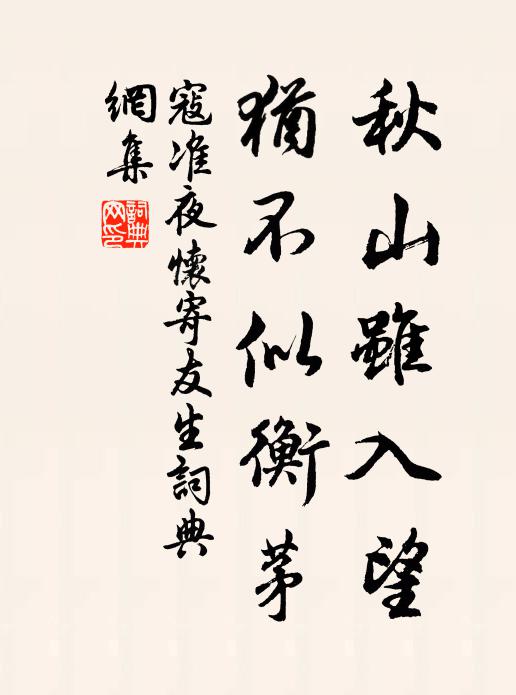 秋山雖入望
猶不似衡茅
寇准夜懷寄友生詞典
網集
詞典
网印